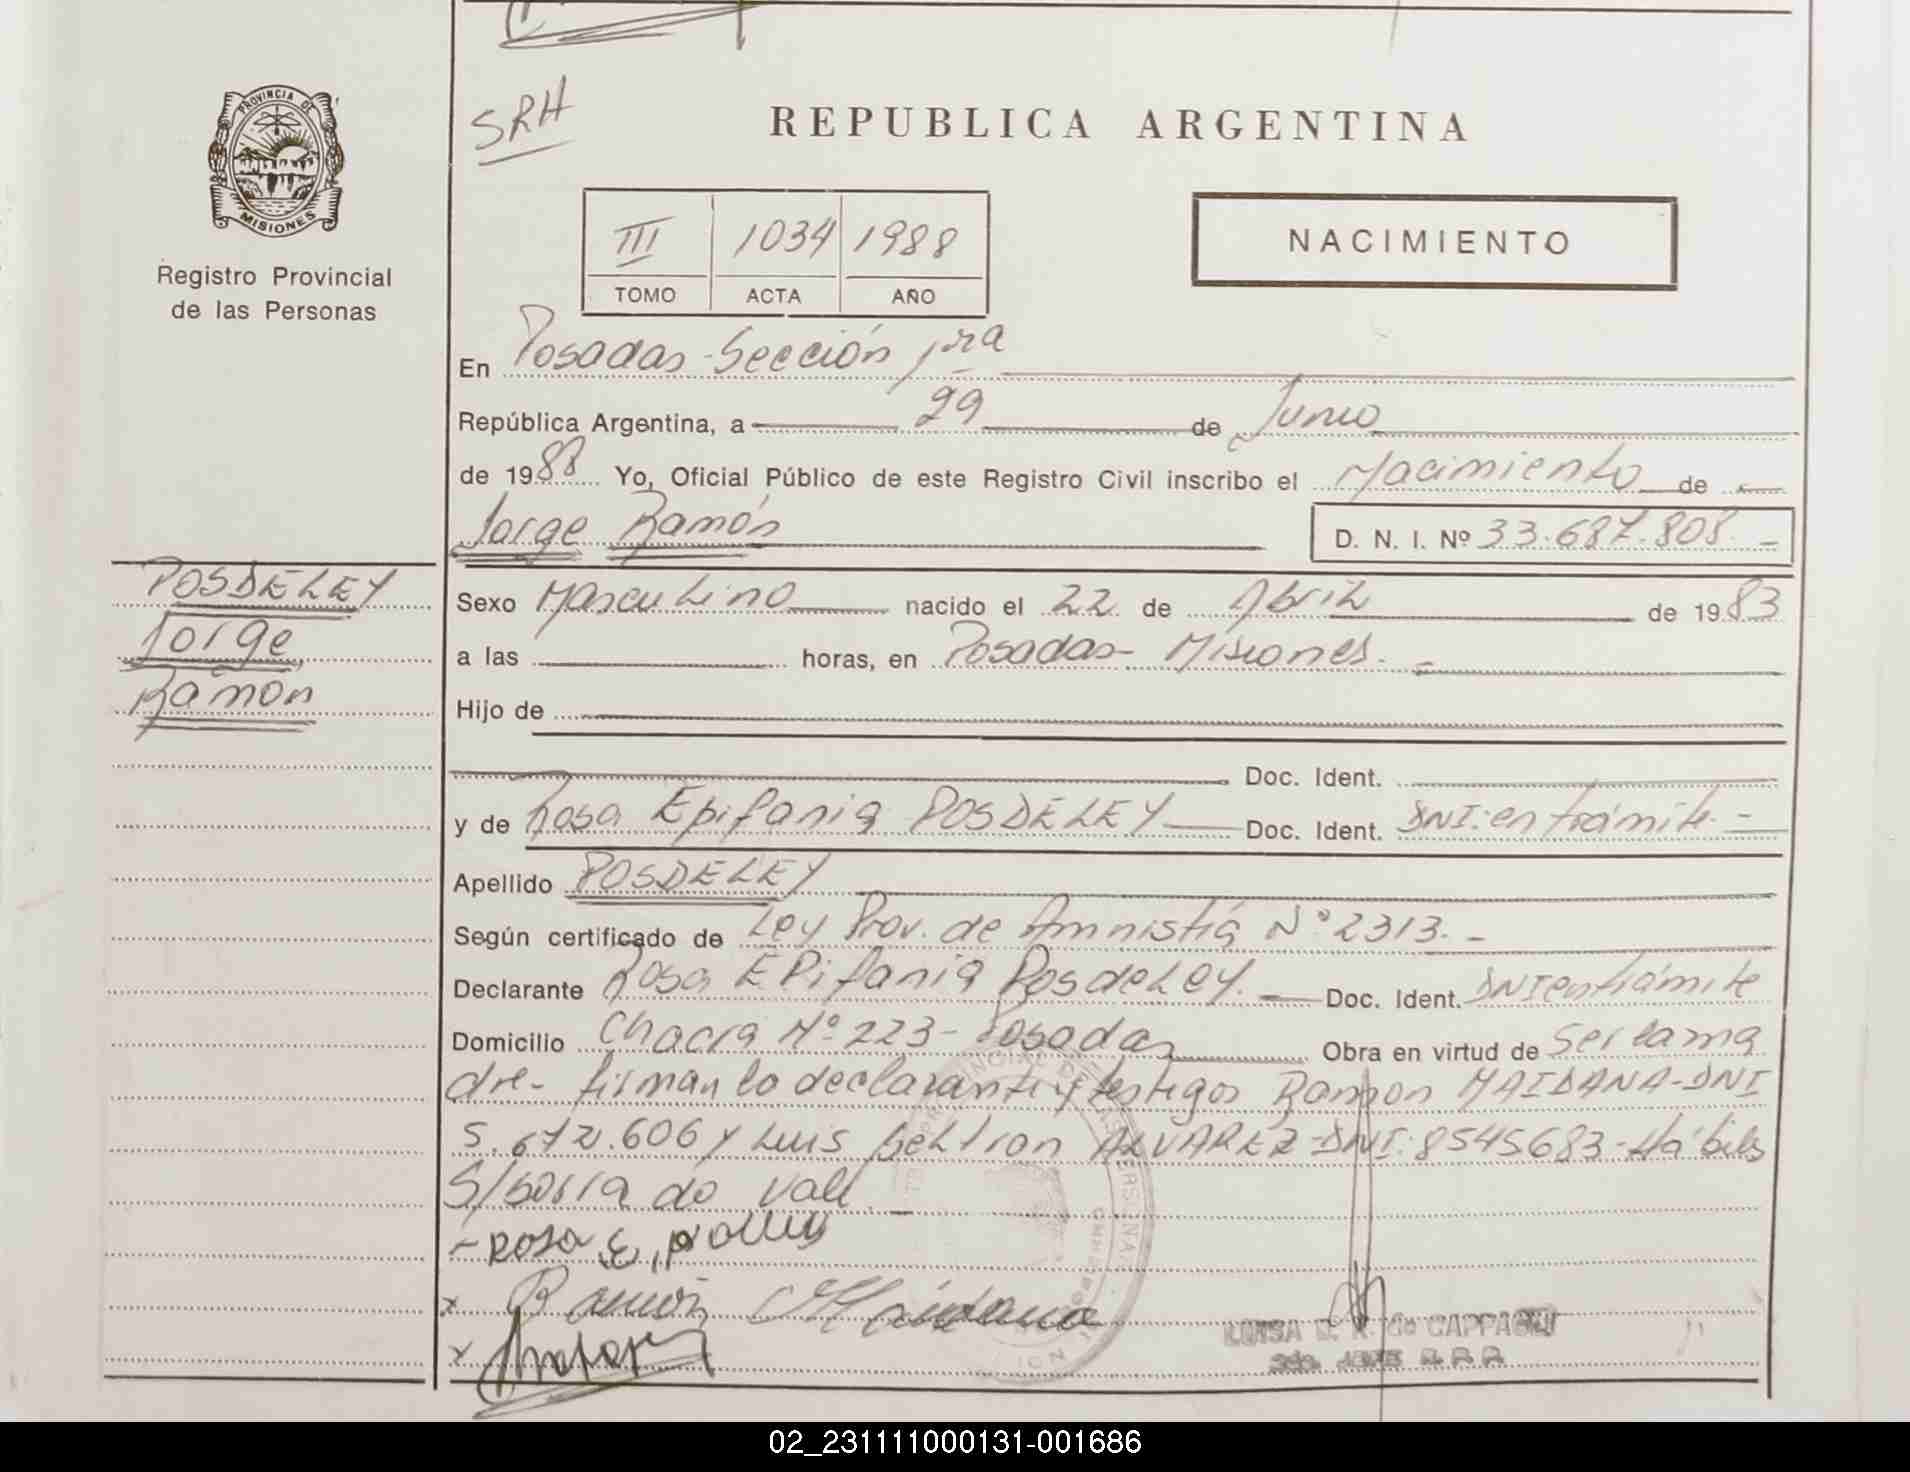 PROVINCIA DE
MISIONES
Registro Provincial
de las Personas
SRH
REPUBLICA ARGENTINA
III 1034 1988
TOMO ACTA AÑO
NACIMIENTO
En Posadas-Sección 1ra
República Argentina, a 29 de Junio
de 1988 Yo, Oficial Público de este Registro Civil inscribo el Nacimiento de
Jorge Ramón
D. N. I. Nº 33.687.808.-
POSDELEY
Jorge
Ramón
Sexo Masculino nacido el 22 de Abril de 1983
a las horas, en Posadas- Misiones.-
Hijo de
Doc. Ident.
y de Rosa Epifania POSDELEY Doc. Ident. DNI:en trámite.-
Apellido POSDELEY
Según certificado de Ley Prov. de Amnistiá Nº 2313.-
Declarante Rosa EPifania PosdeLey.- Doc. Ident. DNI en trámite
Domicilio Chacra Nº 223- Posadas Obra en virtud de ser la ma
dre- firman la declarante y testigos Ramon MAIDANA-DNI
5.672.606 y Luis Beltran ALVAREZ-DNI:8545683-Hábiles
S/borra do vale.-
-ROSA E,
x Ramón Maidana
x
LUISA de CAPPAGLI
02_231111000131-001686